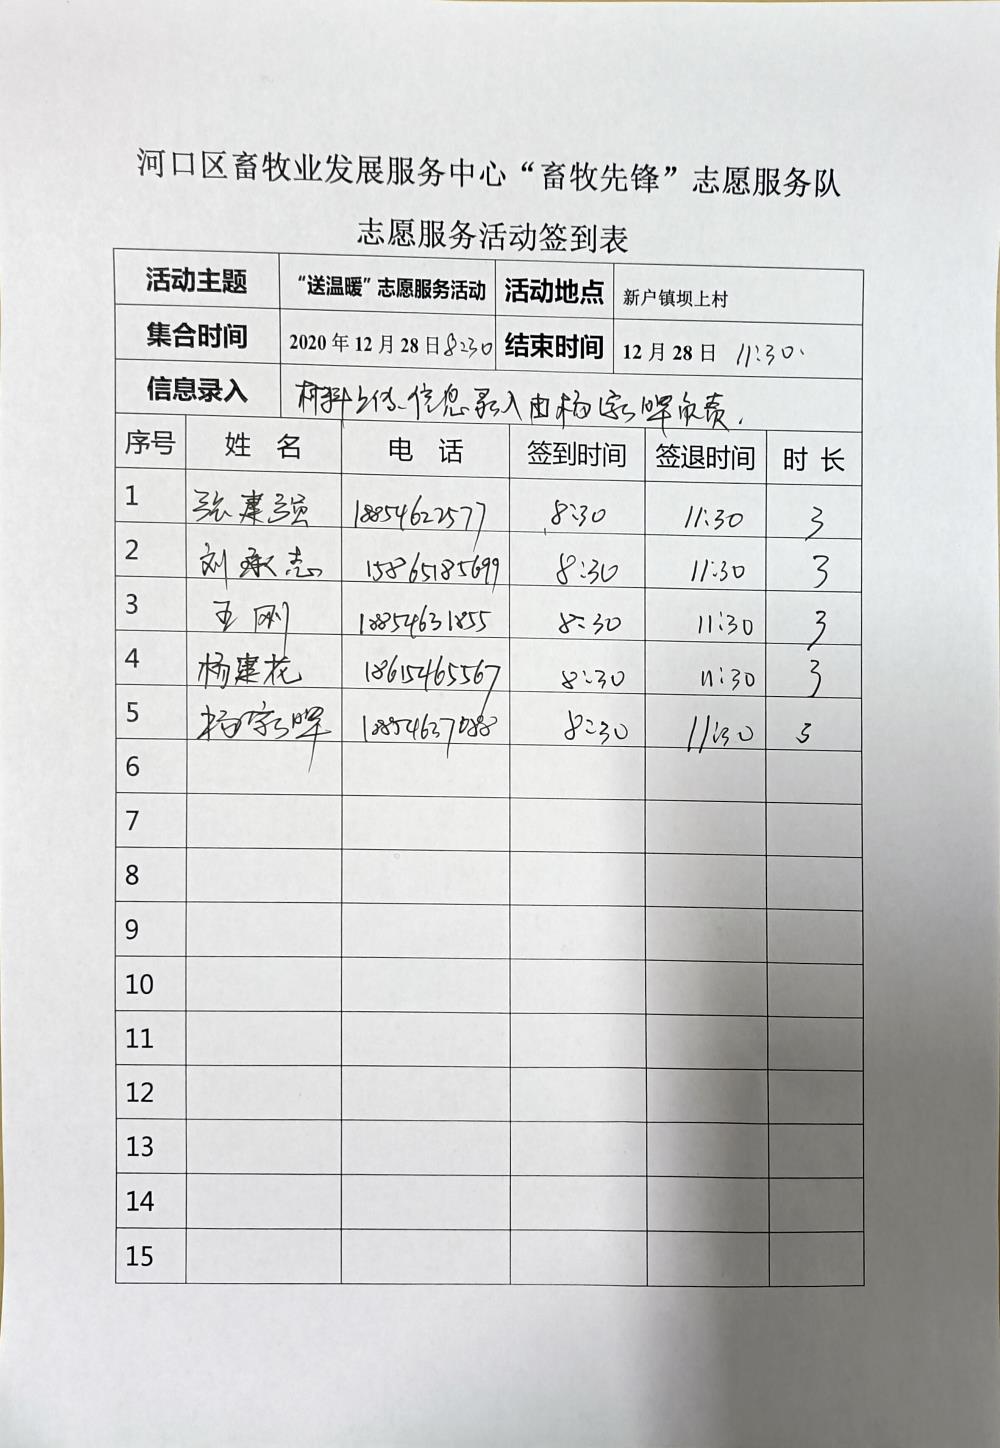 河口区畜牧业发展服务中心“畜牧先锋”志愿服务队
志愿服务活动签到表
活动主题 “送温暖”志愿服务活动 活动地点 新户镇坝上村
集合时间 2020年12月28日8:30 结束时间 12月28日 11:30.
信息录入 材料上传、信息录入由杨家晖负责.
序号 姓 名 电 话 签到时间 签退时间 时 长
1 张建强 18854622577 8:30 11:30 3
2 刘承志 15865185699 8:30 11:30 3
3 王刚 18854631855 8:30 11:30 3
4 杨建花 18615465567 8:30 11:30 3
5 杨家晖 18854637088 8:30 11:30 3
6
7
8
9
10
11
12
13
14
15